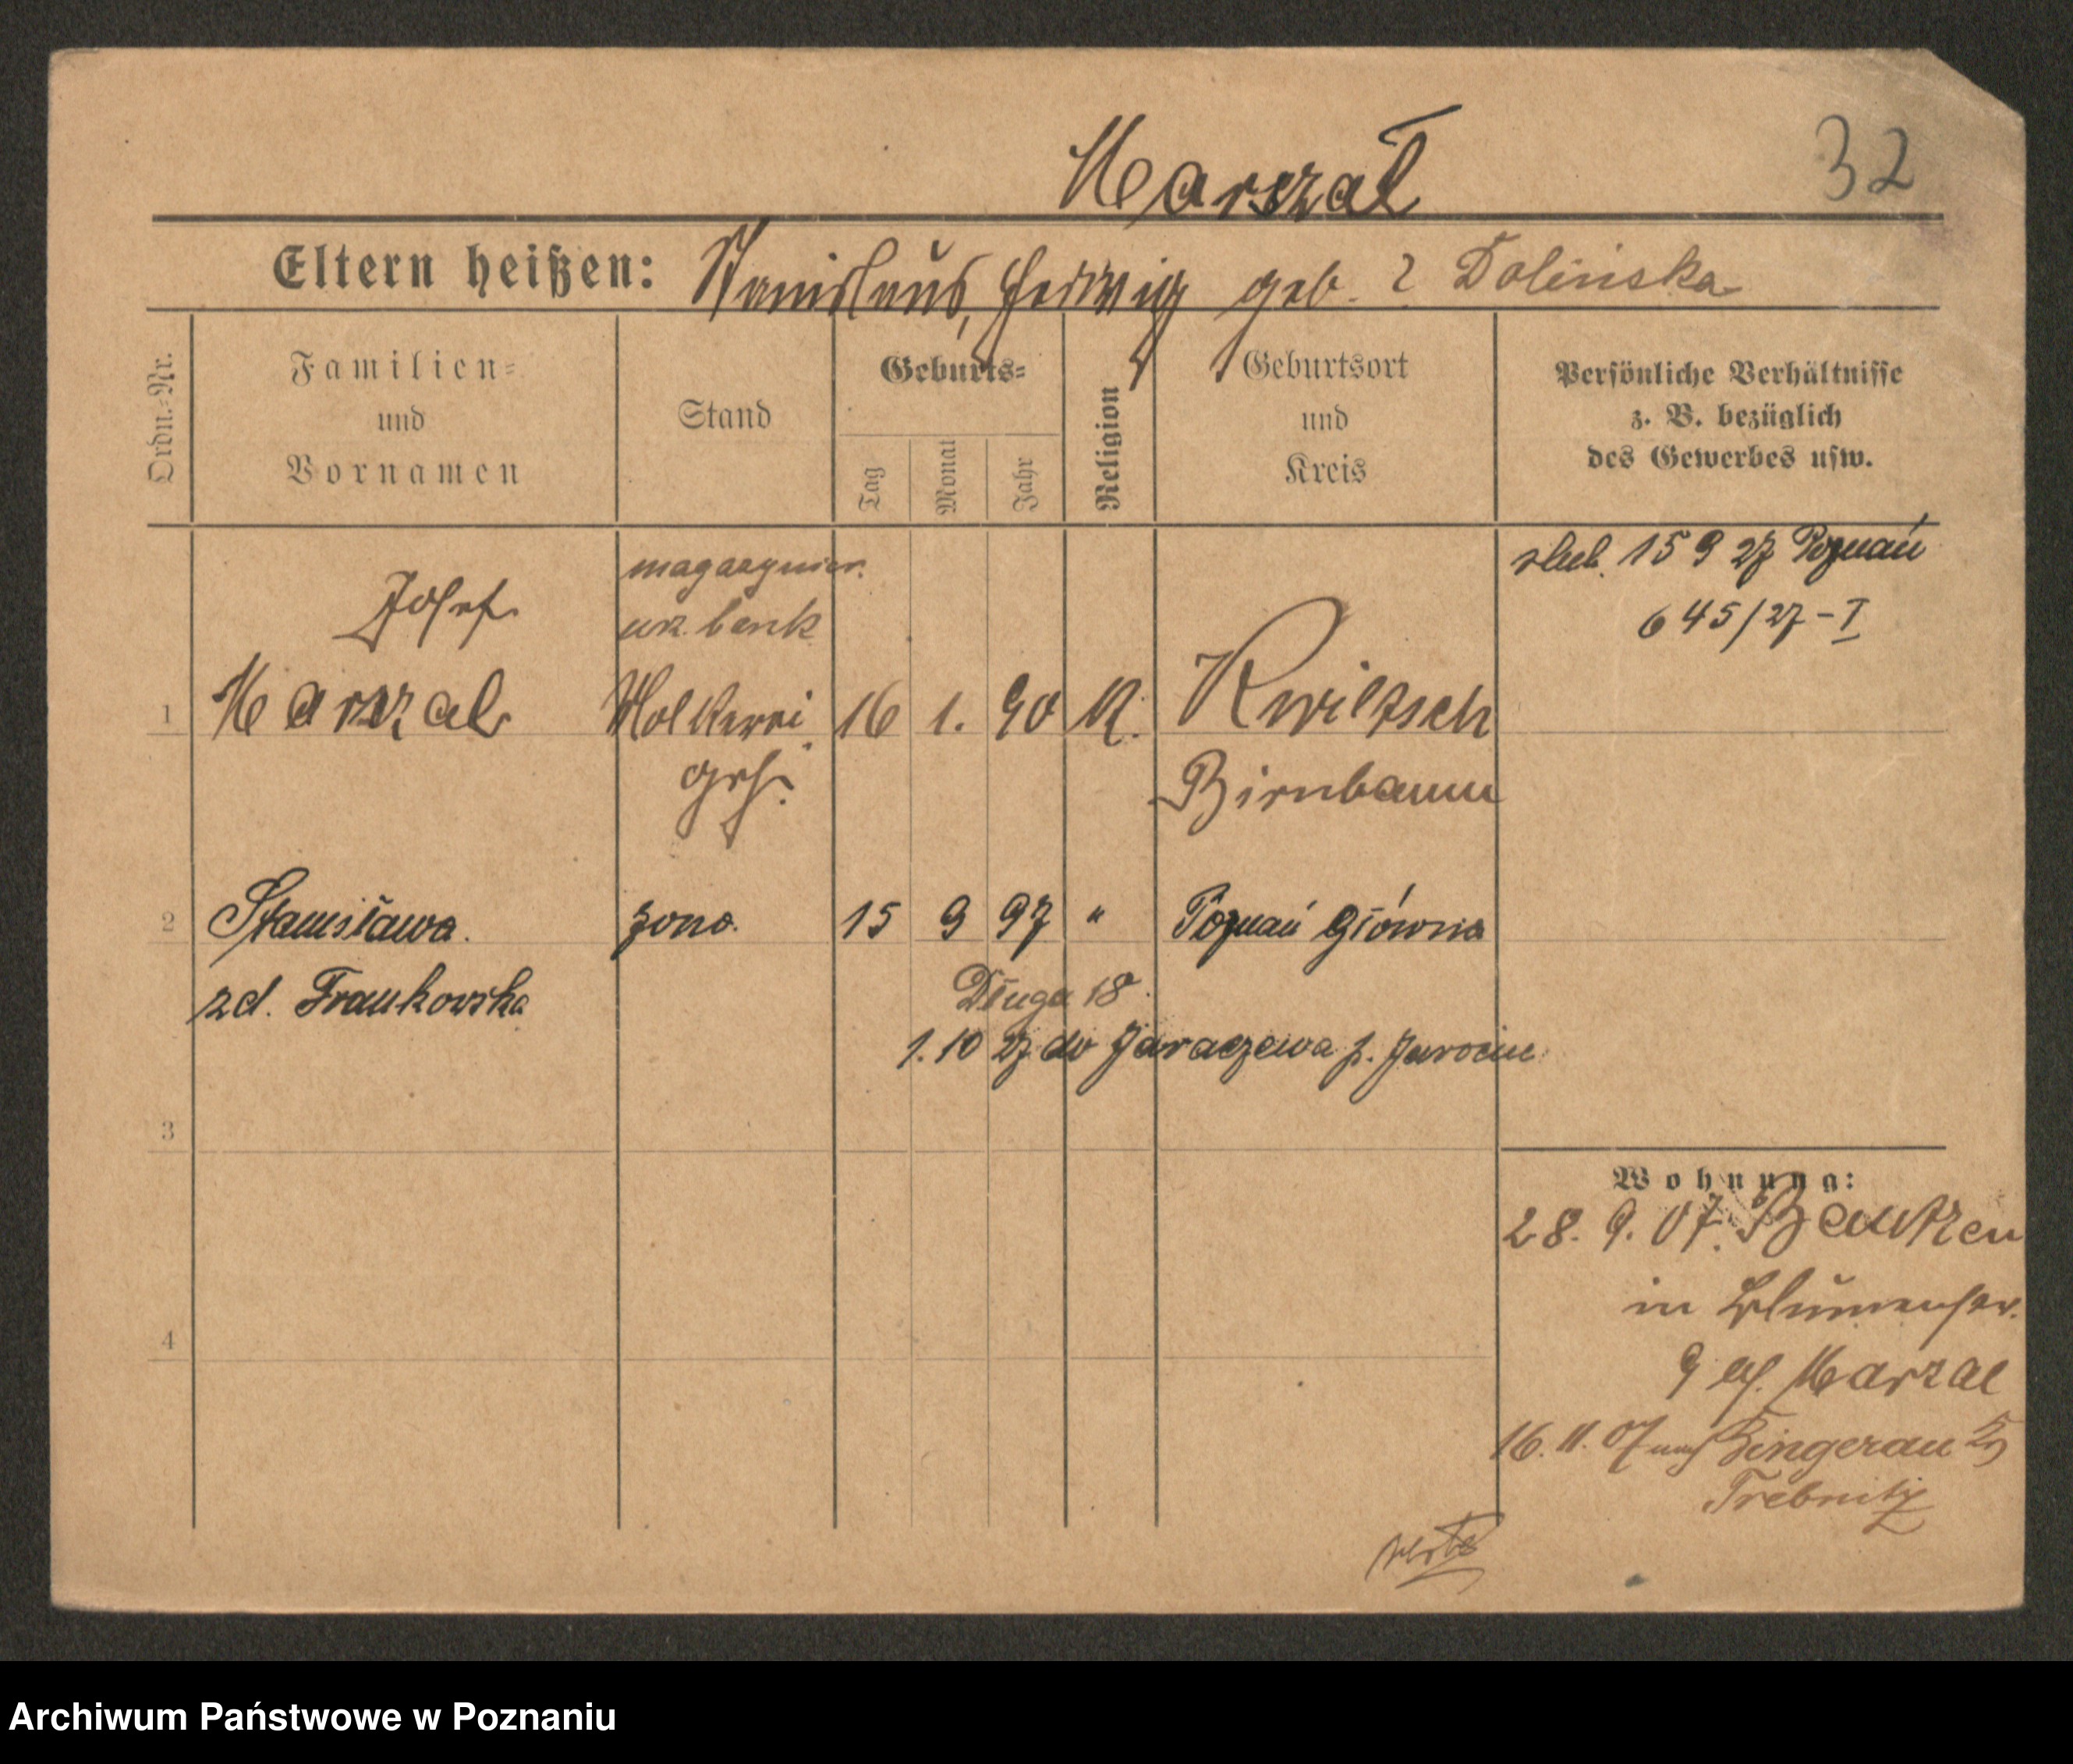 Marszał
32
Eltern heißen: Stanislaus, Hedwig geb. ? Dolinska
Ordn.-Nr.
Familien-
und
Vornamen
Stand
Geburts-
Tag
Monat
Jahr
Religion
Geburtsort
und
Kreis
Persönliche Verhältnisse
z. B. bezüglich
des Gewerbes usw.
ślub. 15 9 27 Poznań
645/27-I
magazynier.
urz. bank
Josef
1 Marszal Molkerei 16 1. 90 K. Kwiltsch
geh. Birnbaum
2 Stanisława. żona. 15 9 97 " Poznań Główna
zd. Frankowska
Długa 18
1. 10 27 do Jaraczewa p. Jarocin
3
4
Wohnung:
28. 9. 07. Bautzen
in
Marzal
16. 11. 07 nach
Trebnitz
Archiwum Państwowe w Poznaniu